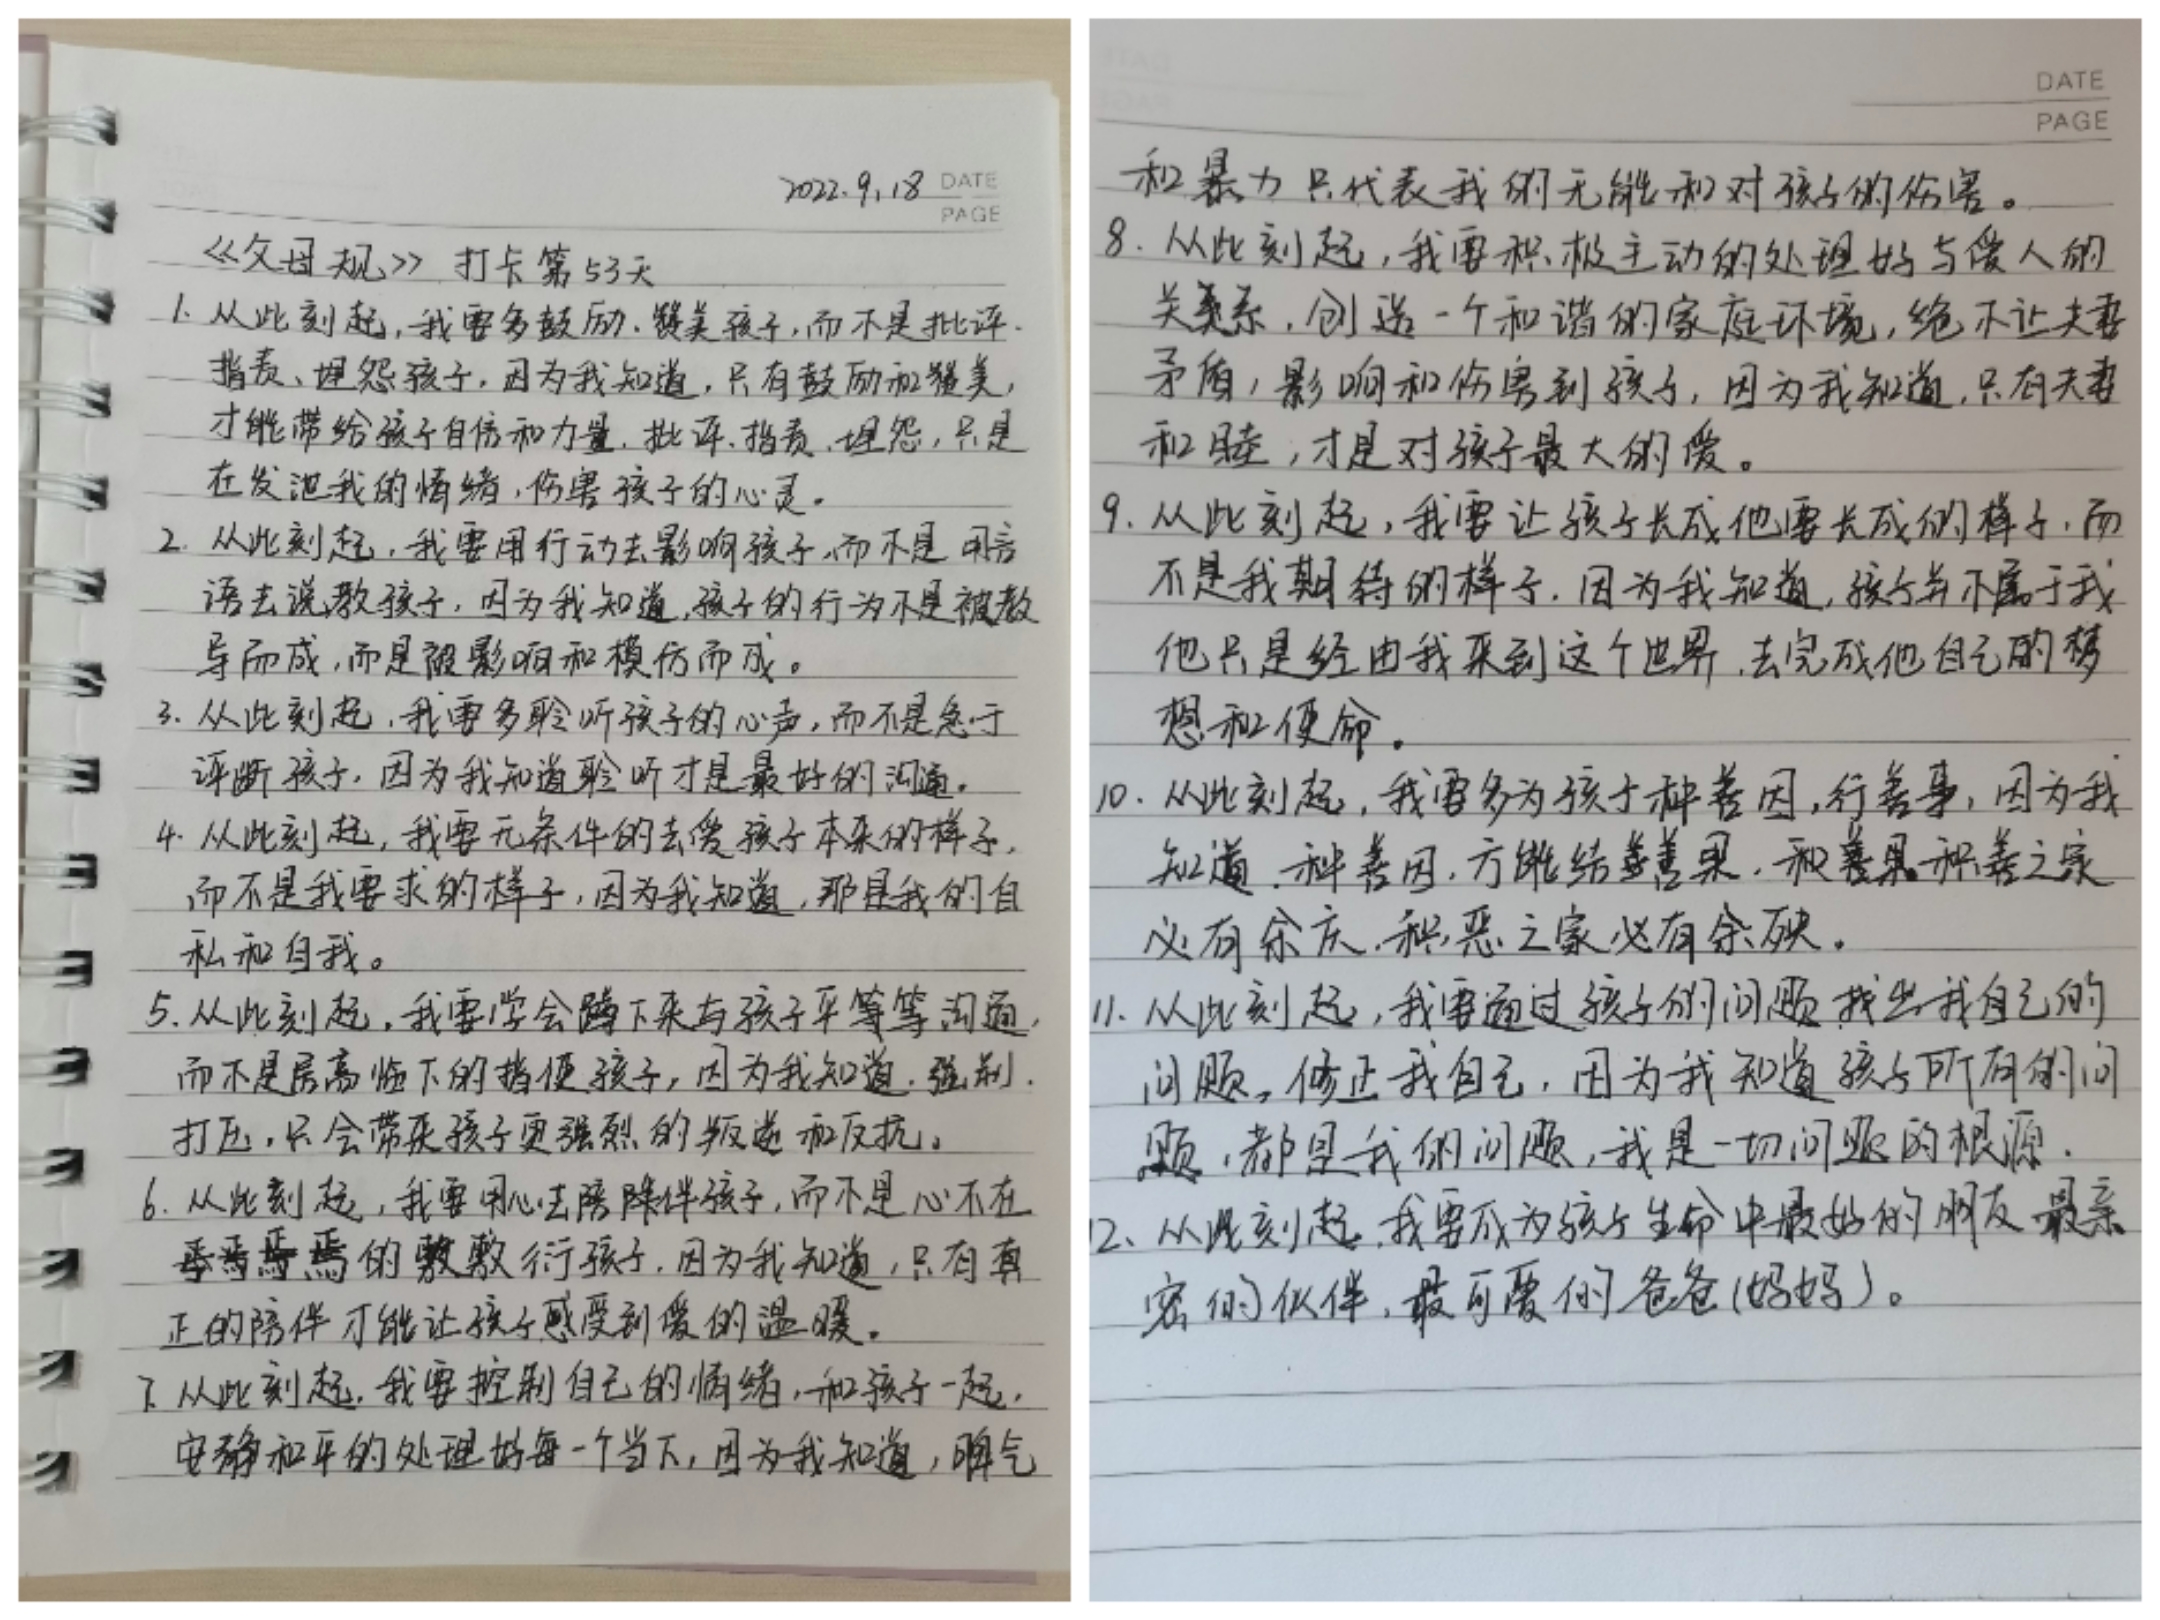 2022.9.18 DATE
PAGE
《父母规》 打卡第53天
1. 从此刻起,我要多鼓励、赞美孩子,而不是批评、
指责、埋怨孩子,因为我知道,只有鼓励和赞美,
才能带给孩子自信和力量,批评、指责、埋怨,只是
在发泄我的情绪,伤害孩子的心灵。
2. 从此刻起,我要用行动去影响孩子,而不是用言
语去说教孩子,因为我知道,孩子的行为不是被教
导而成,而是被影响和模仿而成。
3. 从此刻起,我要多聆听孩子的心声,而不是急于
评断孩子,因为我知道聆听才是最好的沟通。
4. 从此刻起,我要无条件的去爱孩子本来的样子,
而不是我要求的样子,因为我知道,那是我的自
私和自我。
5. 从此刻起,我要学会蹲下来与孩子平等等沟通,
而不是居高临下的指使孩子,因为我知道,强制、
打压,只会带来孩子更强烈的叛逆和反抗。
6. 从此刻起,我要用心去陪伴孩子,而不是心不在
焉的敷衍孩子,因为我知道,只有真
正的陪伴才能让孩子感受到爱的温暖。
7. 从此刻起,我要控制自己的情绪,和孩子一起,
安静和平的处理好每一个当下,因为我知道,脾气
DATE
PAGE
和暴力只代表我的无能和对孩子的伤害。
8. 从此刻起,我要积极主动的处理好与爱人的
关系,创造一个和谐的家庭环境,绝不让夫妻
矛盾,影响和伤害到孩子,因为我知道,只有夫妻
和睦,才是对孩子最大的爱。
9. 从此刻起,我要让孩子长成他要长成的样子,而
不是我期待的样子,因为我知道,孩子并不属于我
他只是经由我来到这个世界,去完成他自己的梦
想和使命。
10. 从此刻起,我要多为孩子种善因,行善事,因为我
知道,种善因,方能结善果,积善之家
必有余庆,积恶之家必有余殃。
11. 从此刻起,我要通过孩子的问题,找出我自己的
问题,修正我自己,因为我知道孩子所有的问
题,都是我的问题,我是一切问题的根源。
12. 从此刻起,我要成为孩子生命中最好的朋友,最亲
密的伙伴,最可爱的爸爸(妈妈)。